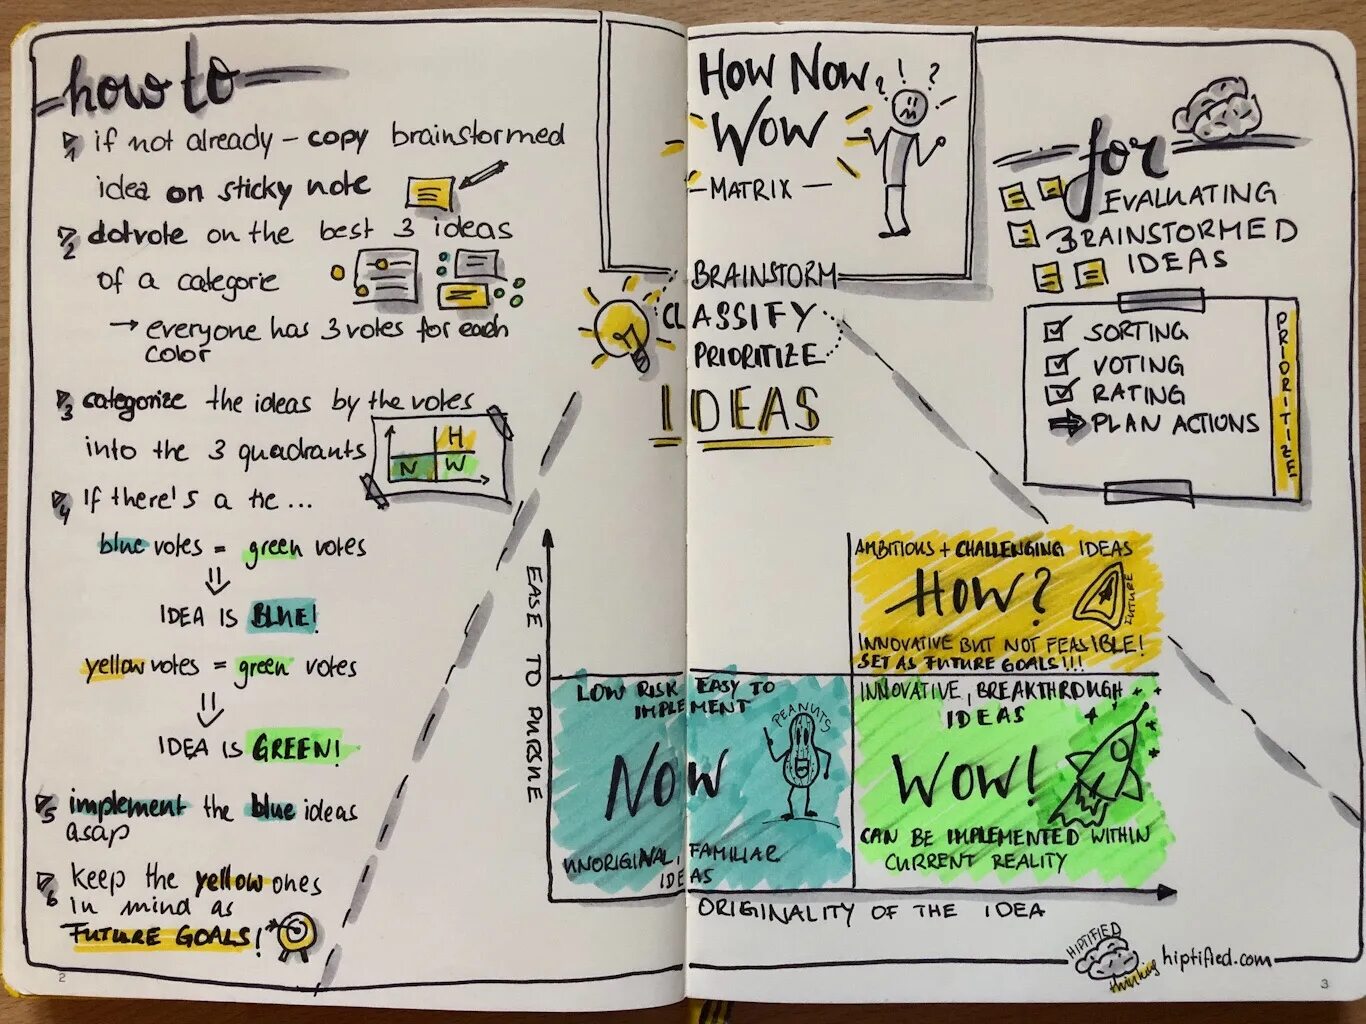 how to
1 if not already - copy brainstormed
idea on sticky note
2 dotvote on the best 3 ideas
of a categorie
→ everyone has 3 votes for each
color
3 categorize the ideas by the votes
into the 3 quadrants
H
N W
4 If there's a tie ...
blue votes = green votes
IDEA IS BLUE!
yellow votes = green votes
IDEA IS GREEN!
5 implement the blue ideas
asap
6 keep the yellow ones
in mind as
FUTURE GOALS!
2
HOW NOW
WOW
- MATRIX -
! ?
BRAINSTORM
CLASSIFY
PRIORITIZE
IDEAS
for
EVALUATING
BRAINSTORMED
IDEAS
SORTING
VOTING
RATING
PLAN ACTIONS
PRIORITIZE
EASE TO PURSUE
AMBITIOUS + CHALLENGING IDEAS
HOW?
FUTURE
INNOVATIVE BUT NOT FEASIBLE!
SET AS FUTURE GOALS!!!
LOW RISK EASY TO
IMPLEMENT
PEANUTS
NOW
UNORIGINAL, FAMILIAR
IDEAS
INNOVATIVE, BREAKTHROUGH
IDEAS
WOW!
CAN BE IMPLEMENTED WITHIN
CURRENT REALITY
ORIGINALITY OF THE IDEA
HIPTIFIED
thinking
hiptified.com
3